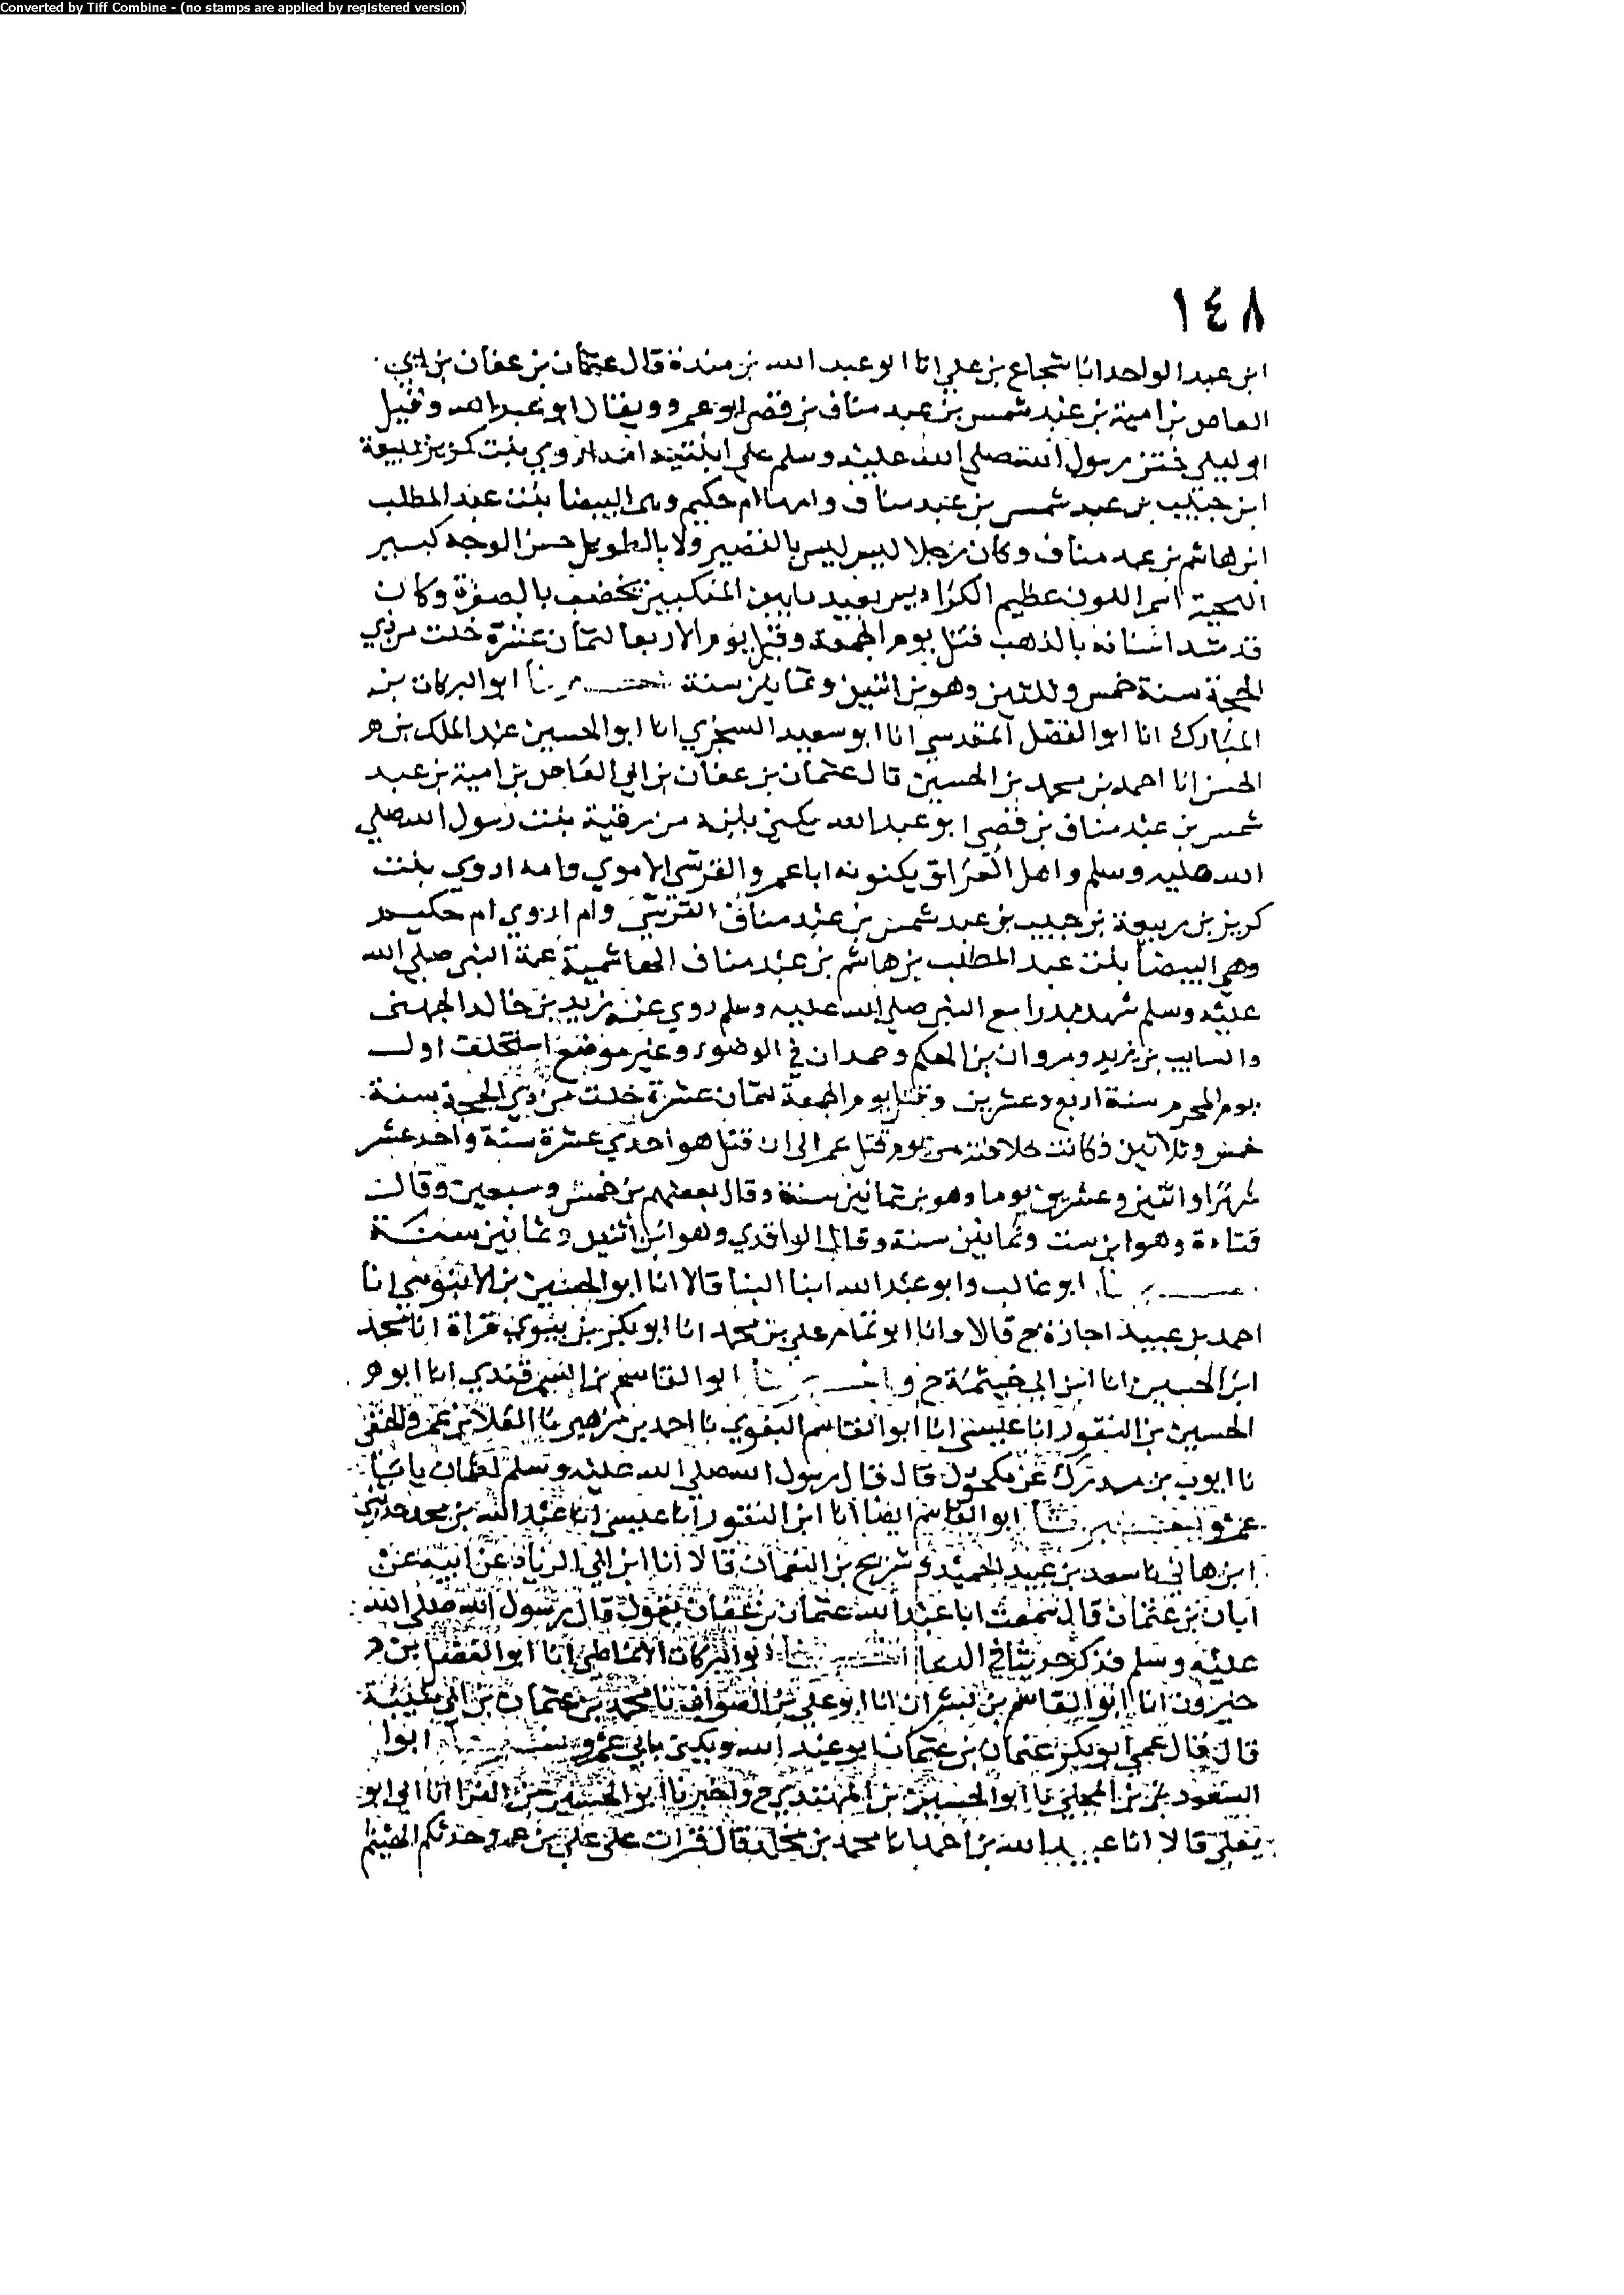 Converted by Tiff Combine - (no stamps are applied by registered version)
١٤٨
ابن عبد الواحد انا شجاع بن علي انا ابو عبد الله بن مندة قال عثمان بن عفان بن ابي
العاص بن امية بن عبد شمس بن عبد مناف بن قصي ابو عمرو ويقال ابو عبد الله وقيل
ابو ليلى ختن رسول الله صلى الله عليه وسلم على ابنتيه امه اروي بنت كريز بن ربيعة
ابن حبيب بن عبد شمس بن عبد مناف وامها ام حكيم وهى البيضا بنت عبد المطلب
ابن هاشم بن عبد مناف وكان رجلا ليس ليس بالقصير ولا بالطويل حسن الوجه كبير
اللحية اسمر اللون عظيم الكراديس بعيد ما بين المنكبين يخضب بالصفرة وكان
قد شد اسنانه بالذهب قتل يوم الجمعة وقيل يوم الاربعا لثمان عشرة خلت من ذي
الحجة سنة خمس وثلثين وهو بن اثنين وثمانين سنة ابو البركات بن
المبارك انا ابو الفضل المقدسي انا ابو سعيد السجزي انا ابو الحسين عبد الملك بن
الحسن انا احمد بن محمد بن الحسين قال عثمان بن عفان بن ابي العاص بن امية بن عبد
شمس بن عبد مناف بن قصي ابو عبد الله يكنى بابنه من رقية بنت رسول الله صلى
الله عليه وسلم واهل العراق يكنونه ابا عمرو القرشي الاموي وامه اروي بنت
كريز بن ربيعة بن حبيب بن عبد شمس بن عبد مناف القرشي وام اروي ام حكيم
وهى البيضا بنت عبد المطلب بن هاشم بن عبد مناف الهاشمية عمة النبى صلى الله
عليه وسلم شهد بدرا مع النبى صلى الله عليه وسلم روي عنه زيد بن خالد الجهنى
والسايب بن يزيد ومروان بن الحكم وحمدان في الوضوء وغير موضع استخلف اول
يوم المحرم سنة اربع وعشرين وقتل يوم الجمعة لثمان عشرة خلت من ذي الحجة سنة
خمس وثلاثين فكانت خلافته من يوم قتل عمر الى ان قتل هو احدي عشرة سنة واحد عشر
شهرا واثنين وعشرين يوما وهو بن ثمانين سنة وقال بعضهم بن خمس وسبعين وقال
قتادة وهو ابن ست وثمانين سنة وقال الواقدي وهو ابن اثنين وثمانين سنة
ابو غالب وابو عبد الله ابنا البنا قالا انا ابو الحسين بن الابنوسي انا
احمد بن عبيد اجازة ح قالا وانا ابو تمام علي بن محمد انا ابو بكر بن بيري قراة انا محمد
ابن الحسين انا ابن ابي خيثمة ح و ابو القاسم بن السمرقندي انا ابو
الحسين بن النقور انا عيسى انا ابو القاسم البغوي نا احمد بن زهير نا العلا بن عمرو الحنفي
نا ايوب بن مدرك عن مكحول قال قال رسول الله صلى الله عليه وسلم لعثمان يا ابا
عمرو ابو القاسم ايضا انا ابن النقور انا عيسى انا عبد الله بن محمد حدثني
ابن هاني نا سعد بن عبد الحميد و شريح بن النعمان قالا انا ابن ابي الزناد عن ابيه عن
ابان بن عثمان قال سمعت ابا عبد الله عثمان بن عفان يقول قال رسول الله صلى الله
عليه وسلم فذكر حديثا في الدعا ابو البركات الانماطي انا ابو الفضل بن
خيرون انا ابو القاسم بن بشران انا ابو علي بن الصواف نا محمد بن عثمان بن ابي شيبة
قال قال عمي ابو بكر عثمان بن عثمان ابو عبد الله ويكنى بابي عمرو ابو
السعود بن المجلي نا ابو الحسين بن المهتدي ح واخبرنا ابو الحسين بن الفرا انا ابي ابو
يعلى قالا انا عبيد الله بن احمد انا محمد بن مخلد قال قرات على علي بن عمرو حدثكم الهيثم